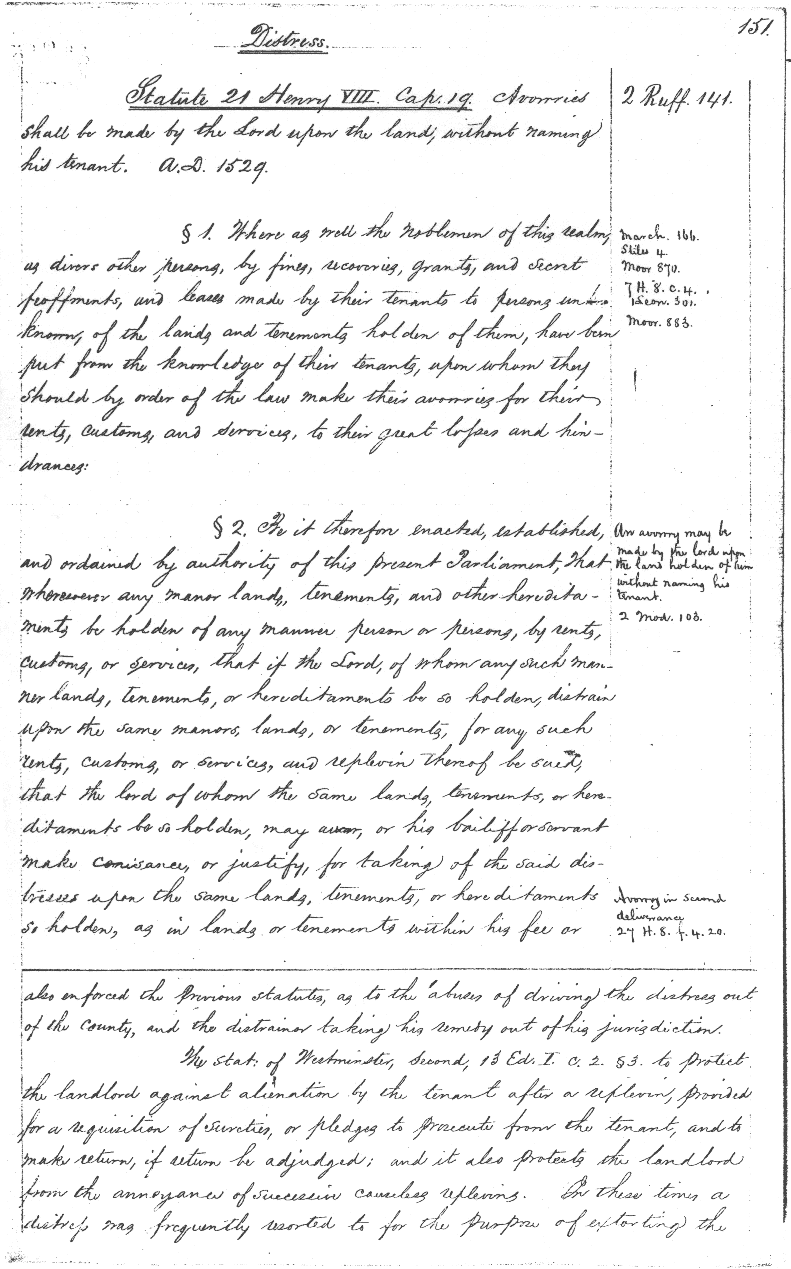 151.
Distress.
Statute 21 Henry VIII. Cap. 19. Avowries
shall be made by the Lord upon the land, without naming
his tenant. A.D. 1529.
2 Ruff. 141.
§ 1. Where as well the Noblemen of this realm,
as divers other persons, by fines, recoveries, grants, and secret
feoffments, and leases made by their tenants to persons un-
known, of the lands and tenements holden of them, have been
put from the knowledge of their tenants, upon whom they
should by order of the law make their avowries for their
rents, customs, and services, to their great losses and hin-
drances:
March. 166.
Stiles 4.
Moor 870.
7 H. 8. c. 4.
1 Leon. 301.
Moor. 883.
§ 2. Be it therefon enacted, established,
and ordained by authority of this present Parliament, That
wheresoever any manor lands, tenements, and other heredita-
ments be holden of any manner person or persons, by rents,
customs, or services, that if the Lord, of whom any such man-
ner lands, tenements, or hereditaments be so holden, distrain
upon the same manors, lands, or tenements, for any such
rents, customs, or services, and replevin thereof be sued,
that the lord of whom the same lands, tenements, or here-
ditaments be so holden, may avow, or his bailiff or servant
make conisance, or justify, for taking of the said dis-
tresses upon the same lands, tenements, or hereditaments
so holden, as in lands or tenements within his fee or
An avowry may be
made by the lord upon
the land holden of him
without naming his
tenant.
2 Mod. 103.
Avowry in second
deliverance
27 H. 8. f. 4. 20.
also enforced the previous statutes, as to the abuses of driving the distress out
of the County, and the distrainer taking his remedy out of his jurisdiction.
The Stat: of Westminster, Second, 13 Ed. I. c. 2. §3. to protect
the landlord against alienation by the tenant after a replevin, provided
for a requisition of sureties, or pledges to prosecute from the tenant, and to
make return, if return be adjudged; and it also protects the landlord
from the annoyance of successiv causeless replevins. In these times a
distress was frequently resorted to for the purpose of extorting the